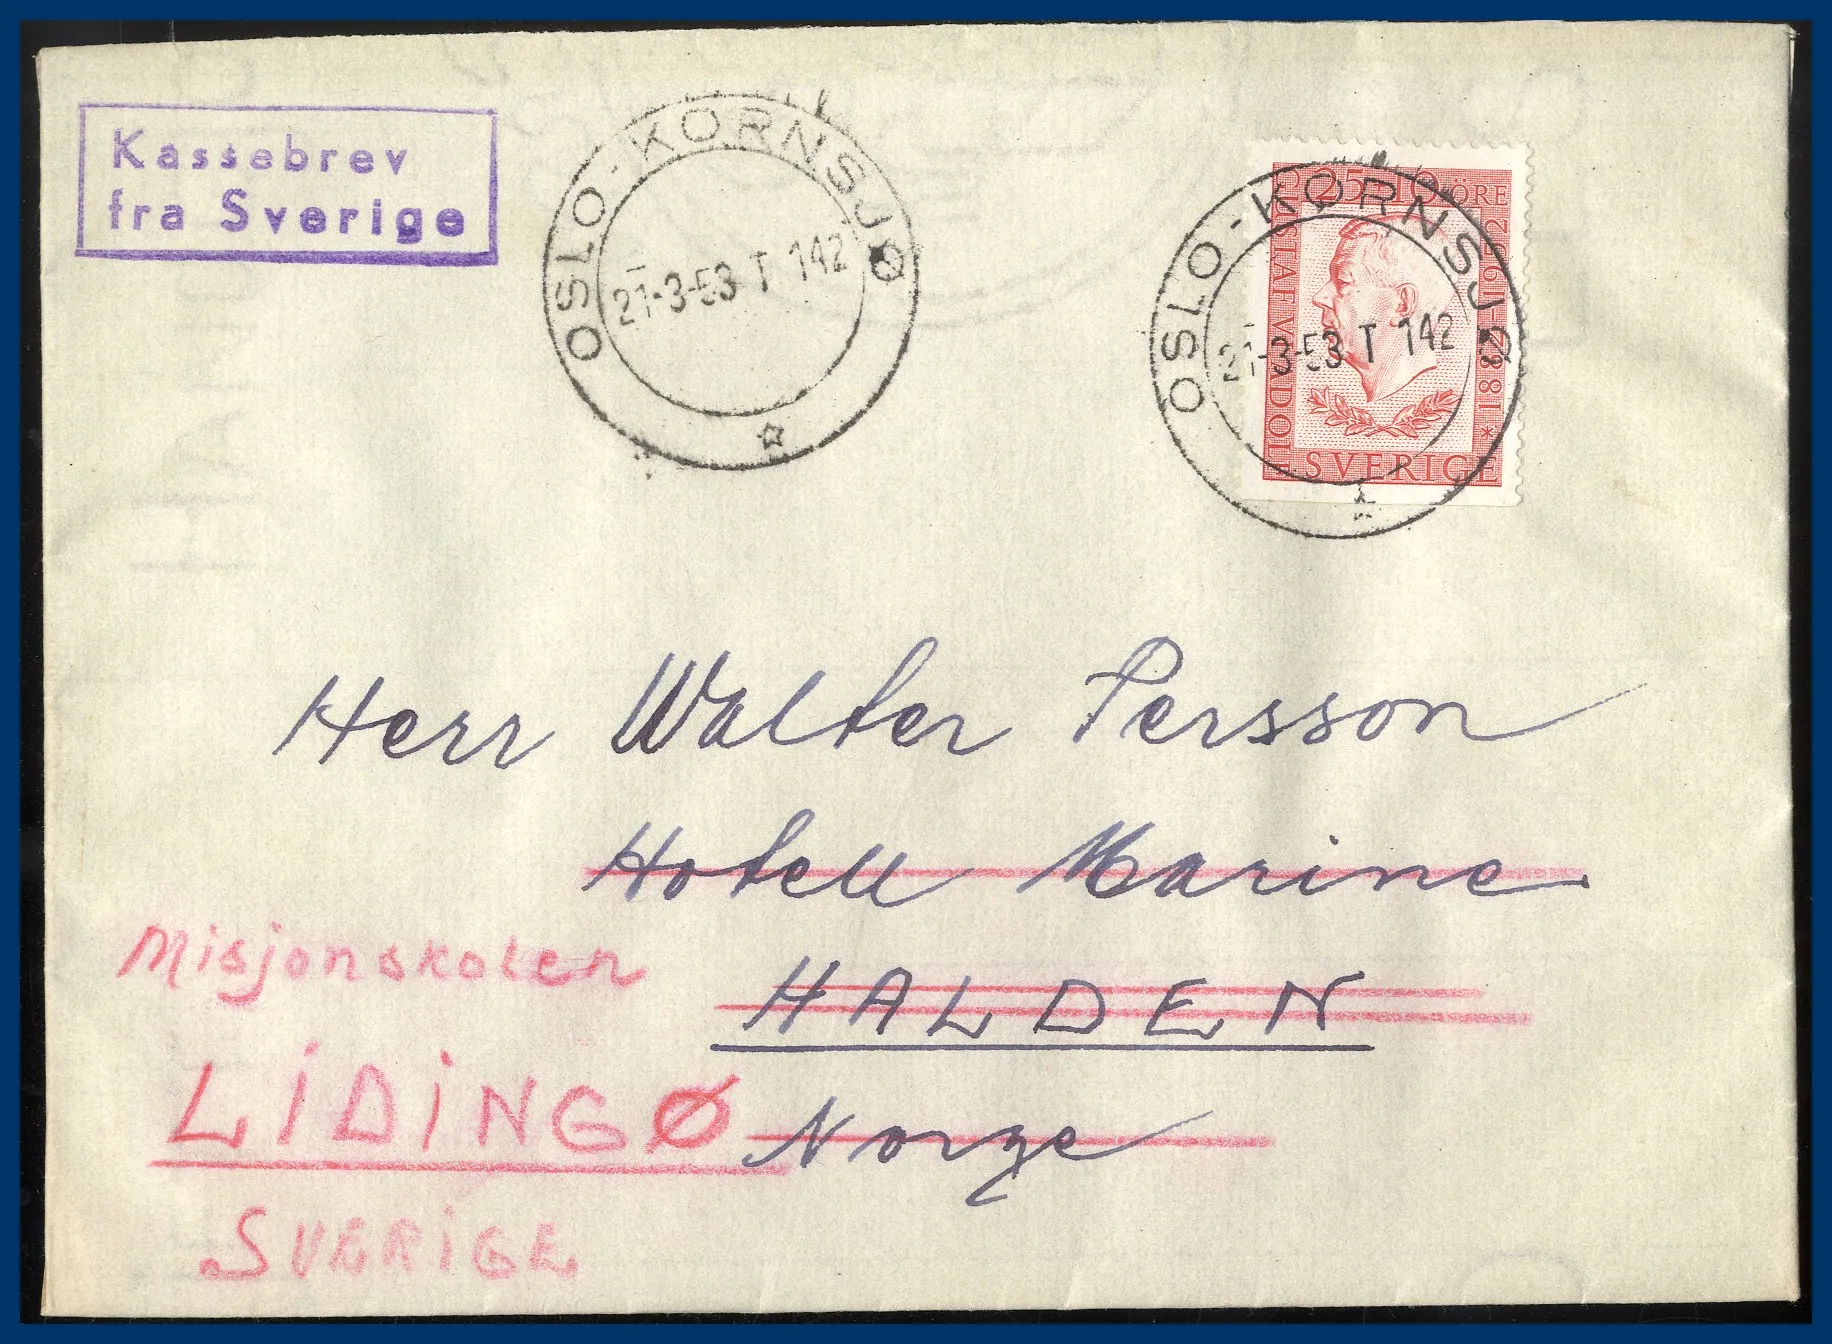 Kassebrev
fra Sverige
OSLO-KORNSJØ
21-3-53 T 142
OSLO-KORNSJØ
21-3-53 T 142
25+10 ÖRE
GUSTAF VI ADOLF
1882 - 11/11 - 1952
SVERIGE
Herr Walter Persson
Hotell Marine
HALDEN
Norge
Misjonskolen
LIDINGØ
SVERIGE